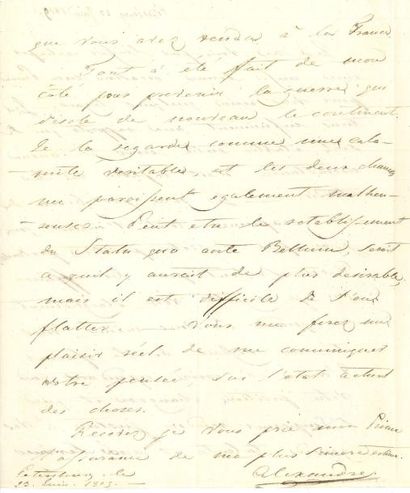 que vous avez rendus à la France
Tout a été fait de mon
côté pour prevenir la guerre qui
desole de nouveau le continent.
Je la regarde comme une cala-
mité veritable, et les deux chances
me paroissent egalement malheu-
reuses. Peut etre le retablissement
du Statu quo ante Bellum, seroit
ce qu'il y auroit de plus desirable,
mais il est difficile de s'en
flatter. Vous me ferez un
plaisir réel de me communiquer
votre pensée sur l'etat actuel
des choses.
Recevez je vous prie mon Prince
l'assurance de ma plus sincere estime.
Alexandre
Petersbourg le